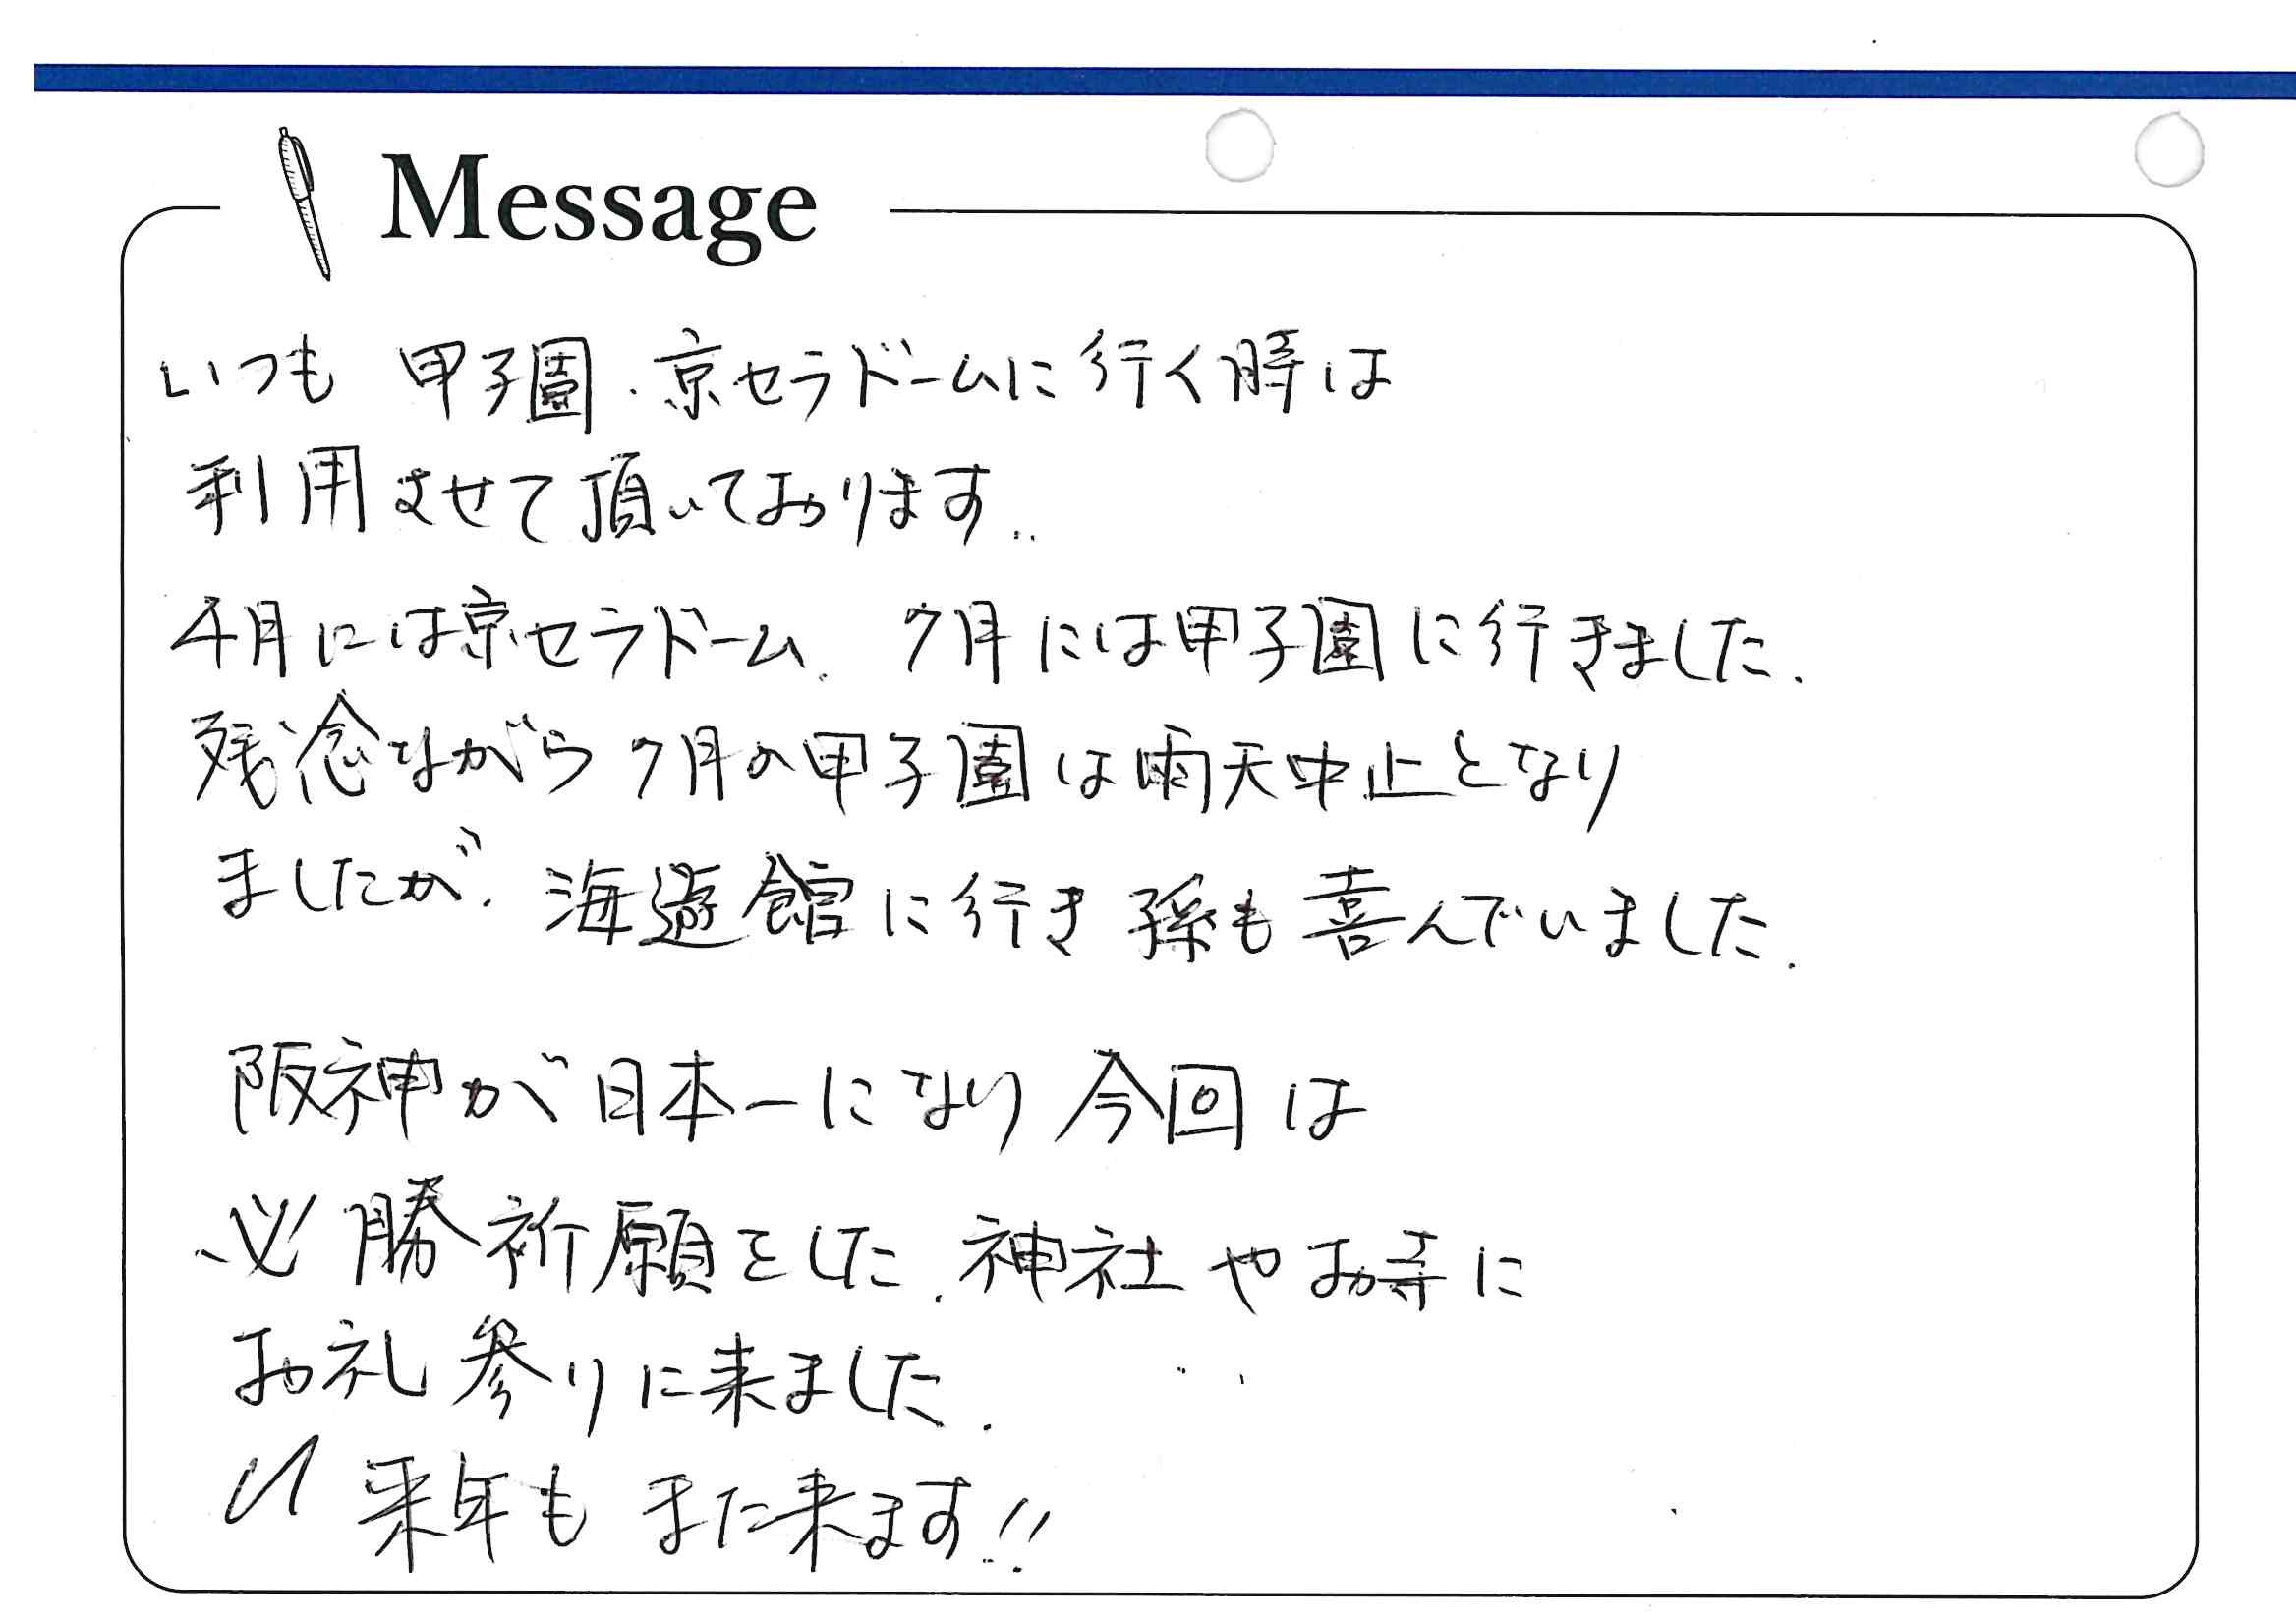 Message
いつも 甲子園.京セラドームに行く時は
利用させて頂いております..
4月には京セラドーム. 7月には甲子園に行きました.
残念ながら 7月の甲子園は雨天中止となり
ましたが. 海遊館に行き 孫も喜んでいました.
阪神が日本一になり 今回は
必勝祈願をした. 神社やお寺に
お礼参りに来ました.
来年も また来ます!!